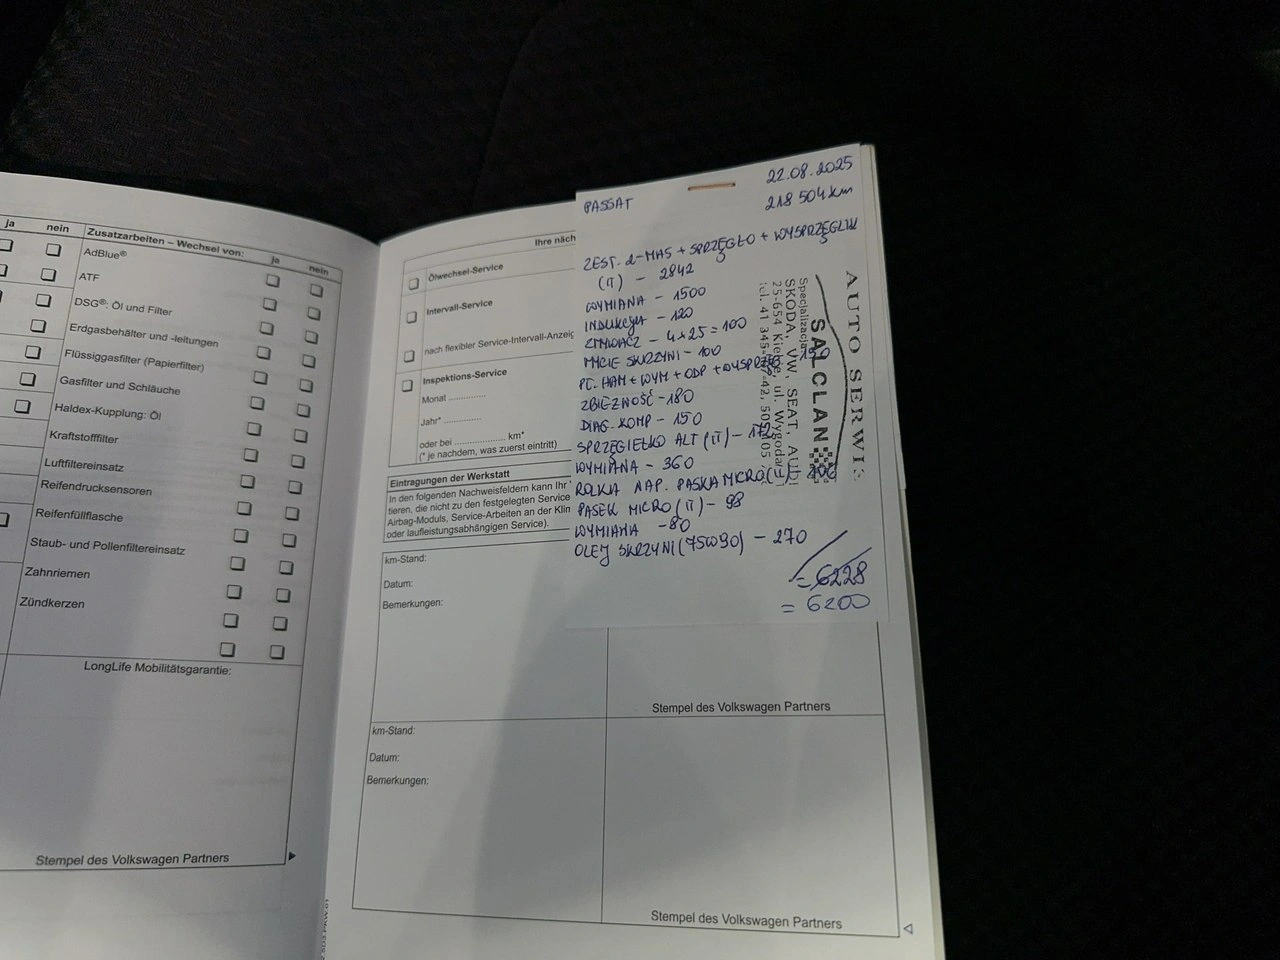 ja nein
Zusatzarbeiten – Wechsel von: ja nein
AdBlue®
ATF
DSG®: Öl und Filter
Erdgasbehälter und -leitungen
Flüssiggasfilter (Papierfilter)
Gasfilter und Schläuche
Haldex-Kupplung: Öl
Kraftstofffilter
Luftfiltereinsatz
Reifendrucksensoren
Reifenfüllflasche
Staub- und Pollenfiltereinsatz
Zahnriemen
Zündkerzen
LongLife Mobilitätsgarantie:
Stempel des Volkswagen Partners
Ihre näch
Ölwechsel-Service
Intervall-Service
nach flexibler Service-Intervall-Anzeig
Inspektions-Service
Monat ..............
Jahr* ..............
oder bei .................... km*
(* je nachdem, was zuerst eintritt)
Eintragungen der Werkstatt
In den folgenden Nachweisfeldern kann Ihr
tieren, die nicht zu den festgelegten Service
Airbag-Moduls, Service-Arbeiten an der Klim
oder laufleistungsabhängigen Service).
km-Stand:
Datum:
Bemerkungen:
Stempel des Volkswagen Partners
km-Stand:
Datum:
Bemerkungen:
Stempel des Volkswagen Partners
22.08.2025
PASSAT 218 504 km
ZEST. 2-MAS + SPRZĘGŁO + WYSPRZĘGLIK
(IT) – 2842
WYMIANA – 1500
INDUKCJA – 120
ZMYWACZ – 4x25 = 100
MYCIE SKRZYNI – 100
PŁ. HAM + WYM + ODP + WYSPRZĘG
ZBIEŻNOŚĆ – 180
DIAG. KOMP – 150
SPRZĘGIEŁKO ALT (IT) –
WYMIANA – 360
ROLKA NAP. PASKA MICRO (IT) –
PASEK MICRO (IT) – 98
WYMIANA – 80
OLEJ SKRZYNI (75W90) – 270
= 6228
= 6200
AUTO SERWIS
SALCLAN
Specjalizacja
SKODA, VW, SEAT, AUDI
25-654 Kielce, ul. Wygodna
tel. 41 345-